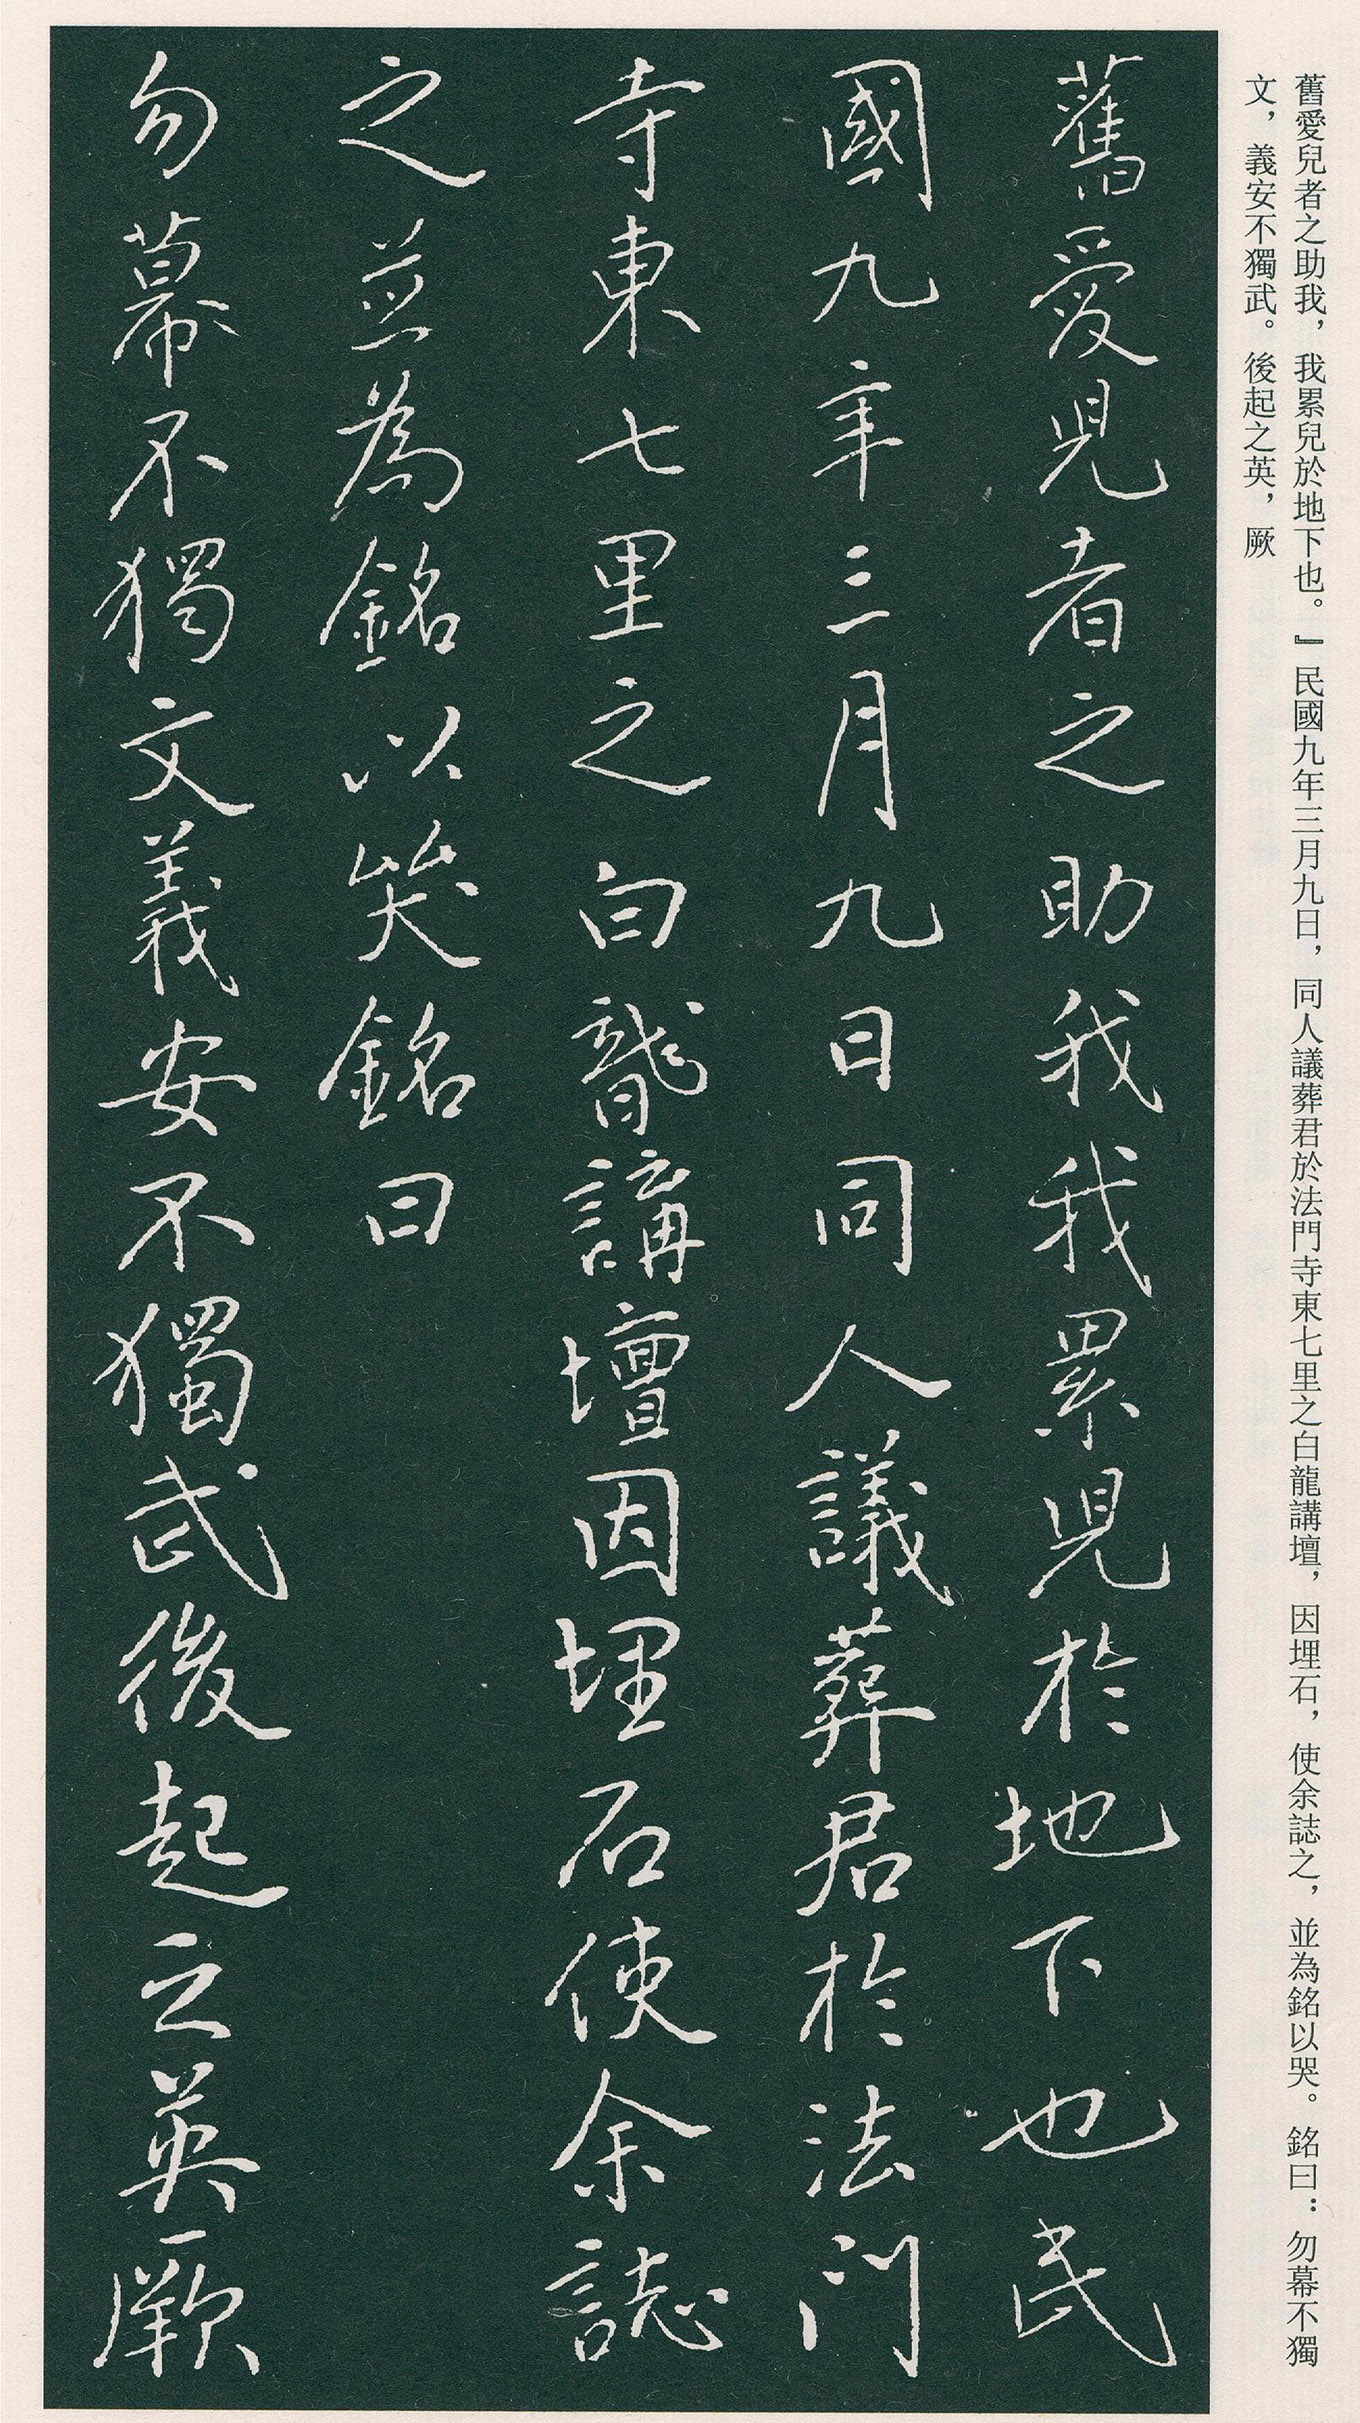 舊愛兒者之助我，我累兒於地下也。』民國九年三月九日，同人議葬君於法門寺東七里之白龍講壇，因埋石，使余誌之，並為銘以哭。銘曰：勿幕不獨
文，義安不獨武。後起之英，厥
舊愛兒者之助我我累兒於地下也民
國九年三月九日同人議葬君於法門
寺東七里之白龍講壇因埋石使余誌
之並為銘以哭銘曰
勿幕不獨文義安不獨武後起之英厥